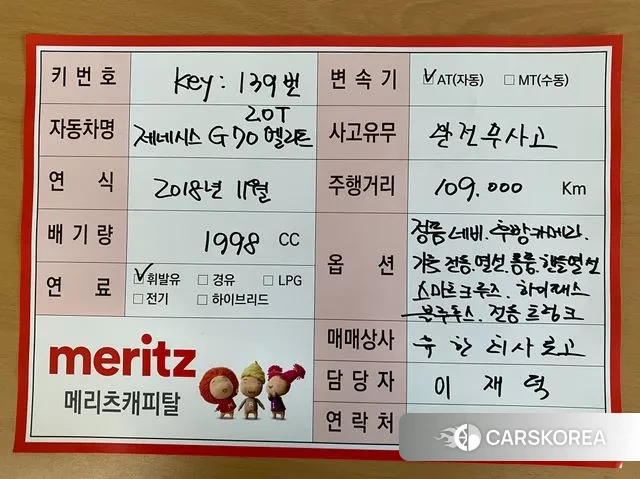 키번호 key: 139번
변속기 ☑AT(자동) □MT(수동)
자동차명 2.0T
제네시스 G70 엘리트
사고유무 완전무사고
연식 2018년 11월
주행거리 109.000 Km
배기량 1998 CC
옵션 정품네비.후방카메라.
가죽전동.열선.통풍.핸들열선
스마트크루즈. 하이패스
블루투스. 전동트렁크
연료 ☑휘발유 □경유 □LPG
□전기 □하이브리드
매매상사
담당자 이재덕
연락처
meritz
메리츠캐피탈
CARSKOREA